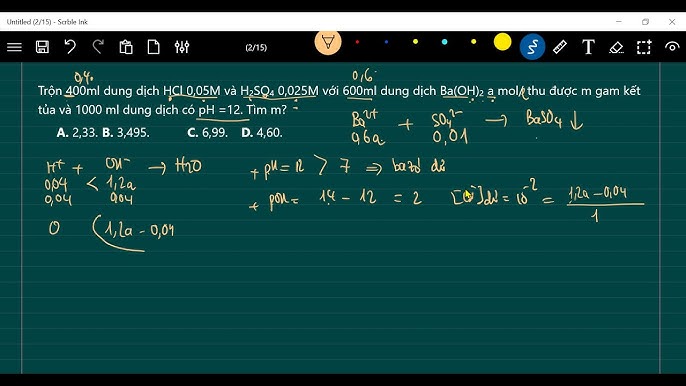 Untitled (2/15) - Scrble Ink
(2/15)
0,4
0,6
Trộn 400ml dung dịch HCl 0,05M và H₂SO₄ 0,025M với 600ml dung dịch Ba(OH)₂ a mol/ thu được m gam kết
tủa và 1000 ml dung dịch có pH =12. Tìm m?
A. 2,33. B. 3,495. C. 6,99. D. 4,60.
Ba²⁺ + SO₄²⁻ → BaSO₄ ↓
0,6a 0,01
H⁺ + OH⁻ → H₂O
0,04 < 1,2a
0,04 0,04
0 (1,2a - 0,04
+ pH = 12 > 7 ⇒ bazơ dư
+ pOH = 14 - 12 = 2 [O ⁻] dư = 10⁻² = 1,2a - 0,04
1